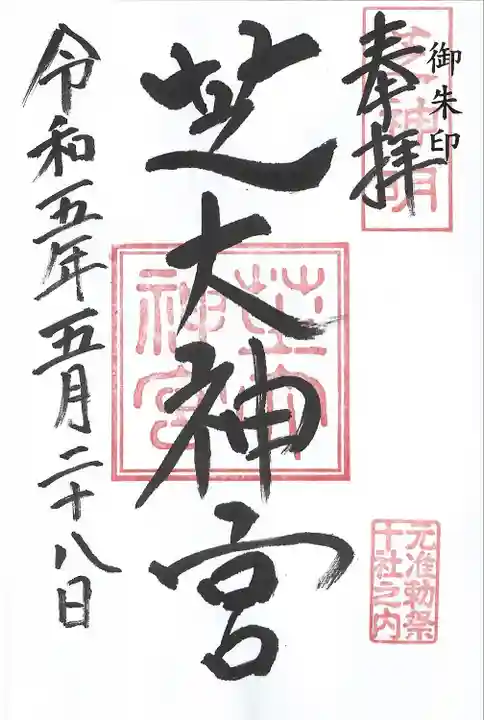 御朱印
奉拝
芝神明
芝大神宮
芝大
神宮
元准勅祭
十社之内
令和五年五月二十八日